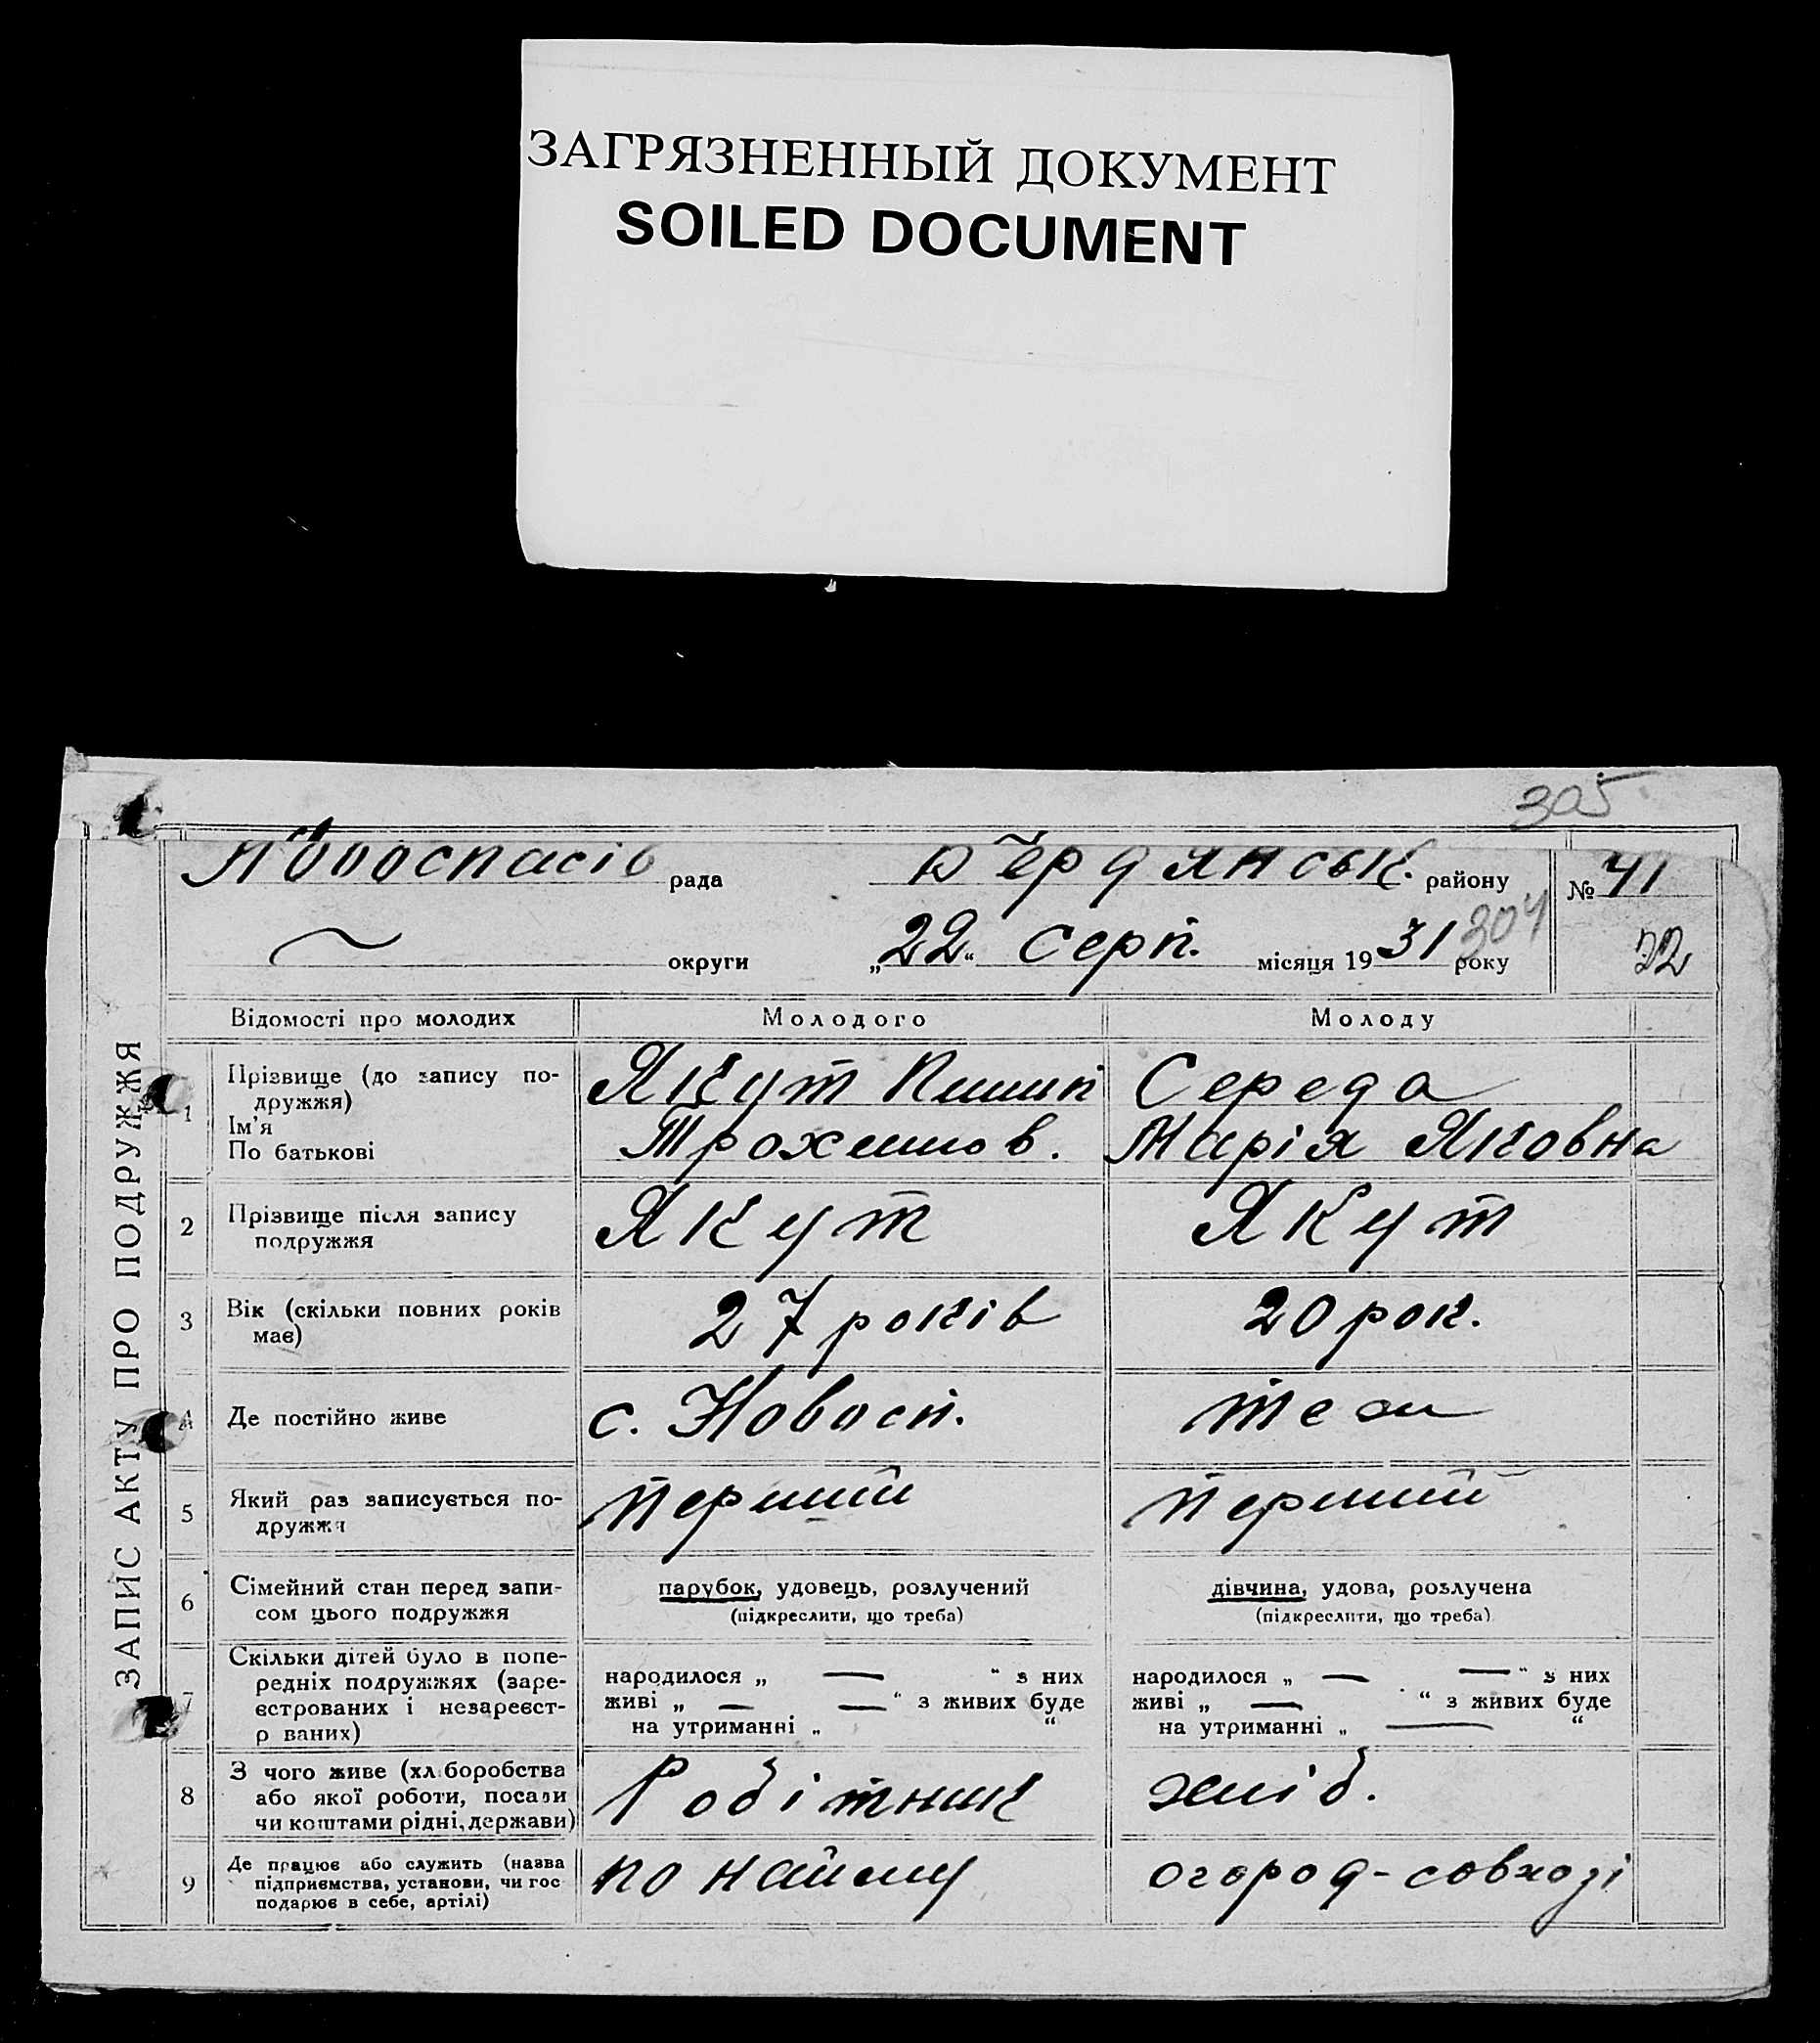 ЗАГРЯЗНЕННЫЙ ДОКУМЕНТ
SOILED DOCUMENT
305
Новоспасів рада Бердянськ. району № 41
округи „22“ Серп. місяця 1931 року 304 32
ЗАПИС АКТУ ПРО ПОДРУЖЖЯ
Відомості про молодих Молодого Молоду
1 Прізвище (до запису по-
дружжя)
Ім'я
По батькові
Якут Пилип
Трохимов.
Середа
Марія Яковна
2 Прізвище після запису
подружжя
Якут Якут
3 Вік (скільки повних років
має)
27 років 20 рок.
4 Де постійно живе с. Новосп. теж
5 Який раз записується по-
дружжя
перший перший
6 Сімейний стан перед запи-
сом цього подружжя
парубок, удовець, розлучений
(підкреслити, що треба)
дівчина, удова, розлучена
(підкреслити, що треба)
7 Скільки дітей було в попе-
редніх подружжях (заре-
єстрованих і незареєст-
р ваних)
народилося „ — “ з них
живі „ — — “ з живих буде
на утриманні „ “
народилося „ — — “ з них
живі „ — “ з живих буде
на утриманні „ — “
8 З чого живе (хліборобства
або якої роботи, посади
чи коштами рідні, держави)
Робітник хліб.
9 Де працює або служить (назва
підприємства, установи, чи гос
подарює в себе, артілі)
по найму огород-совхозі